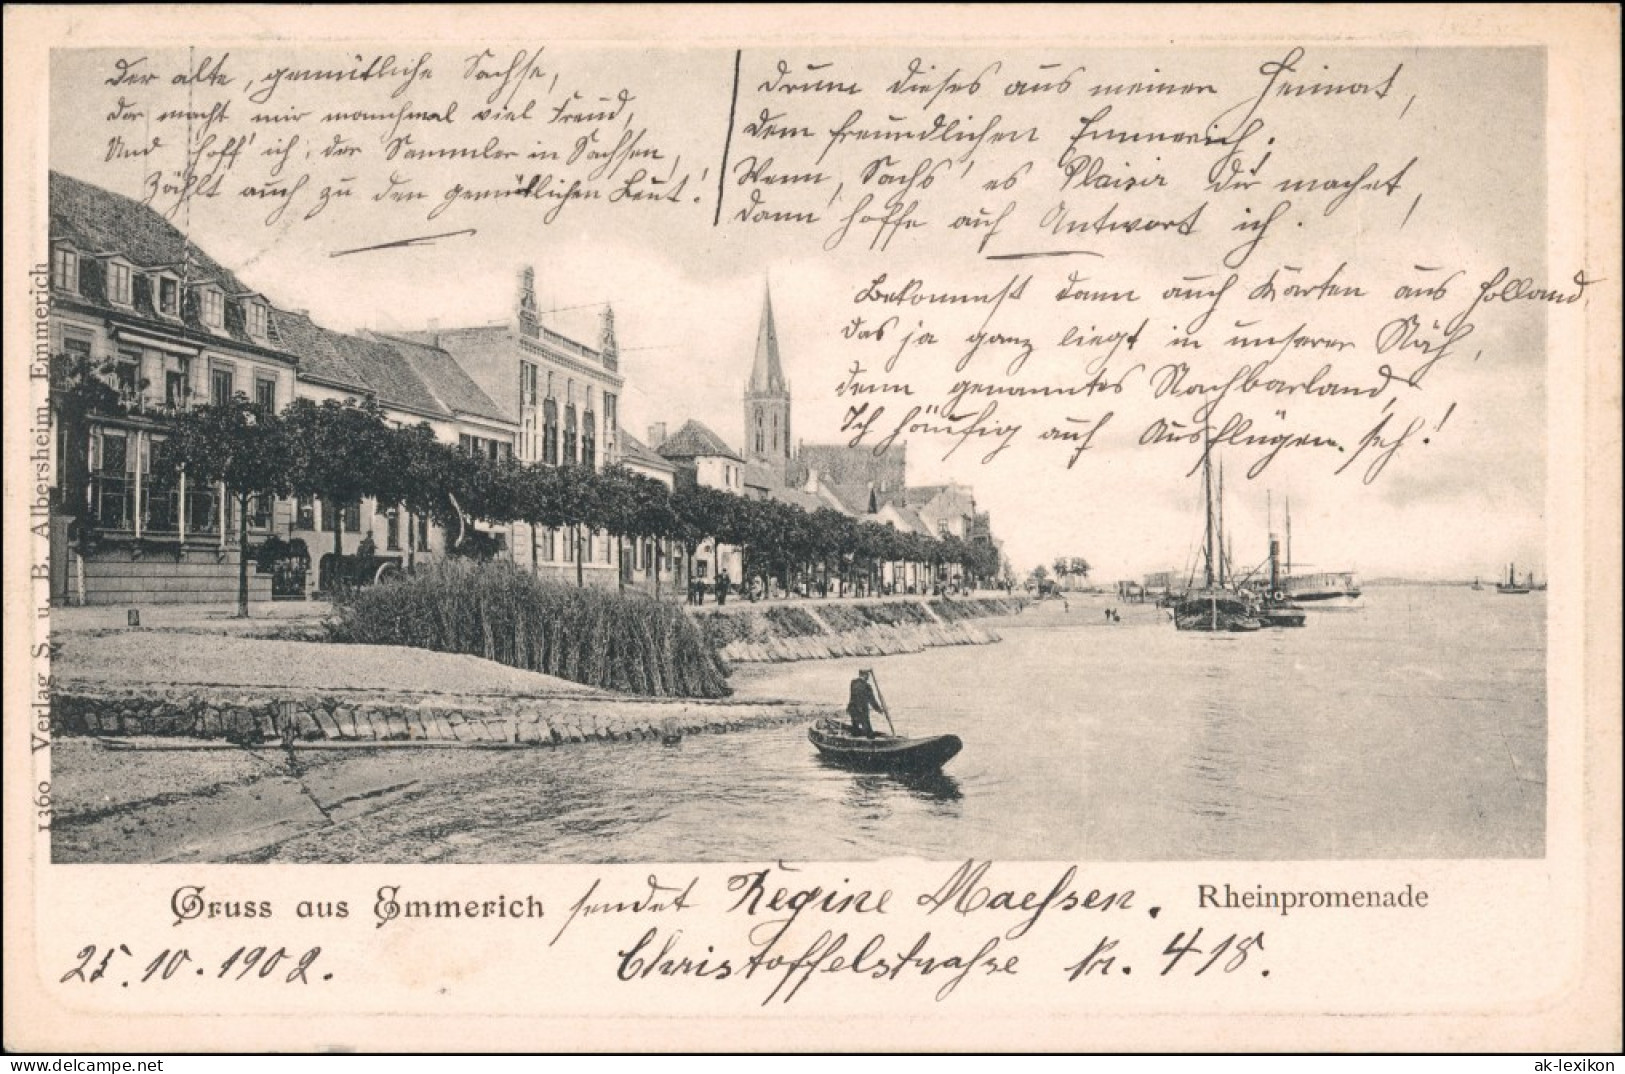 Der alte, gemütliche Sachse,
Der macht mir manchmal viel Freud,
Und hoff' ich, der Sammler in Sachsen,
Zählt auch zu den gemütlichen Leut!
Drum dieses aus meiner Heimat,
Dem freundlichen Emmerich.
Wenn, Sachs' es Plaisir dir machet,
Dann hoffe auf Antwort ich.
Bekommst dann auch Karten aus Holland,
Das ja ganz liegt in unserer Näh,
Denn genanntes Nachbarland,
Ich häufig auf Ausflügen seh!
1360 Verlag S. u. B. Albersheim, Emmerich
Gruss aus Emmerich sendet Regine Maessen. Rheinpromenade
25.10.1902. Christoffelstrasse Nr. 418.
www.delcampe.net
ak-lexikon